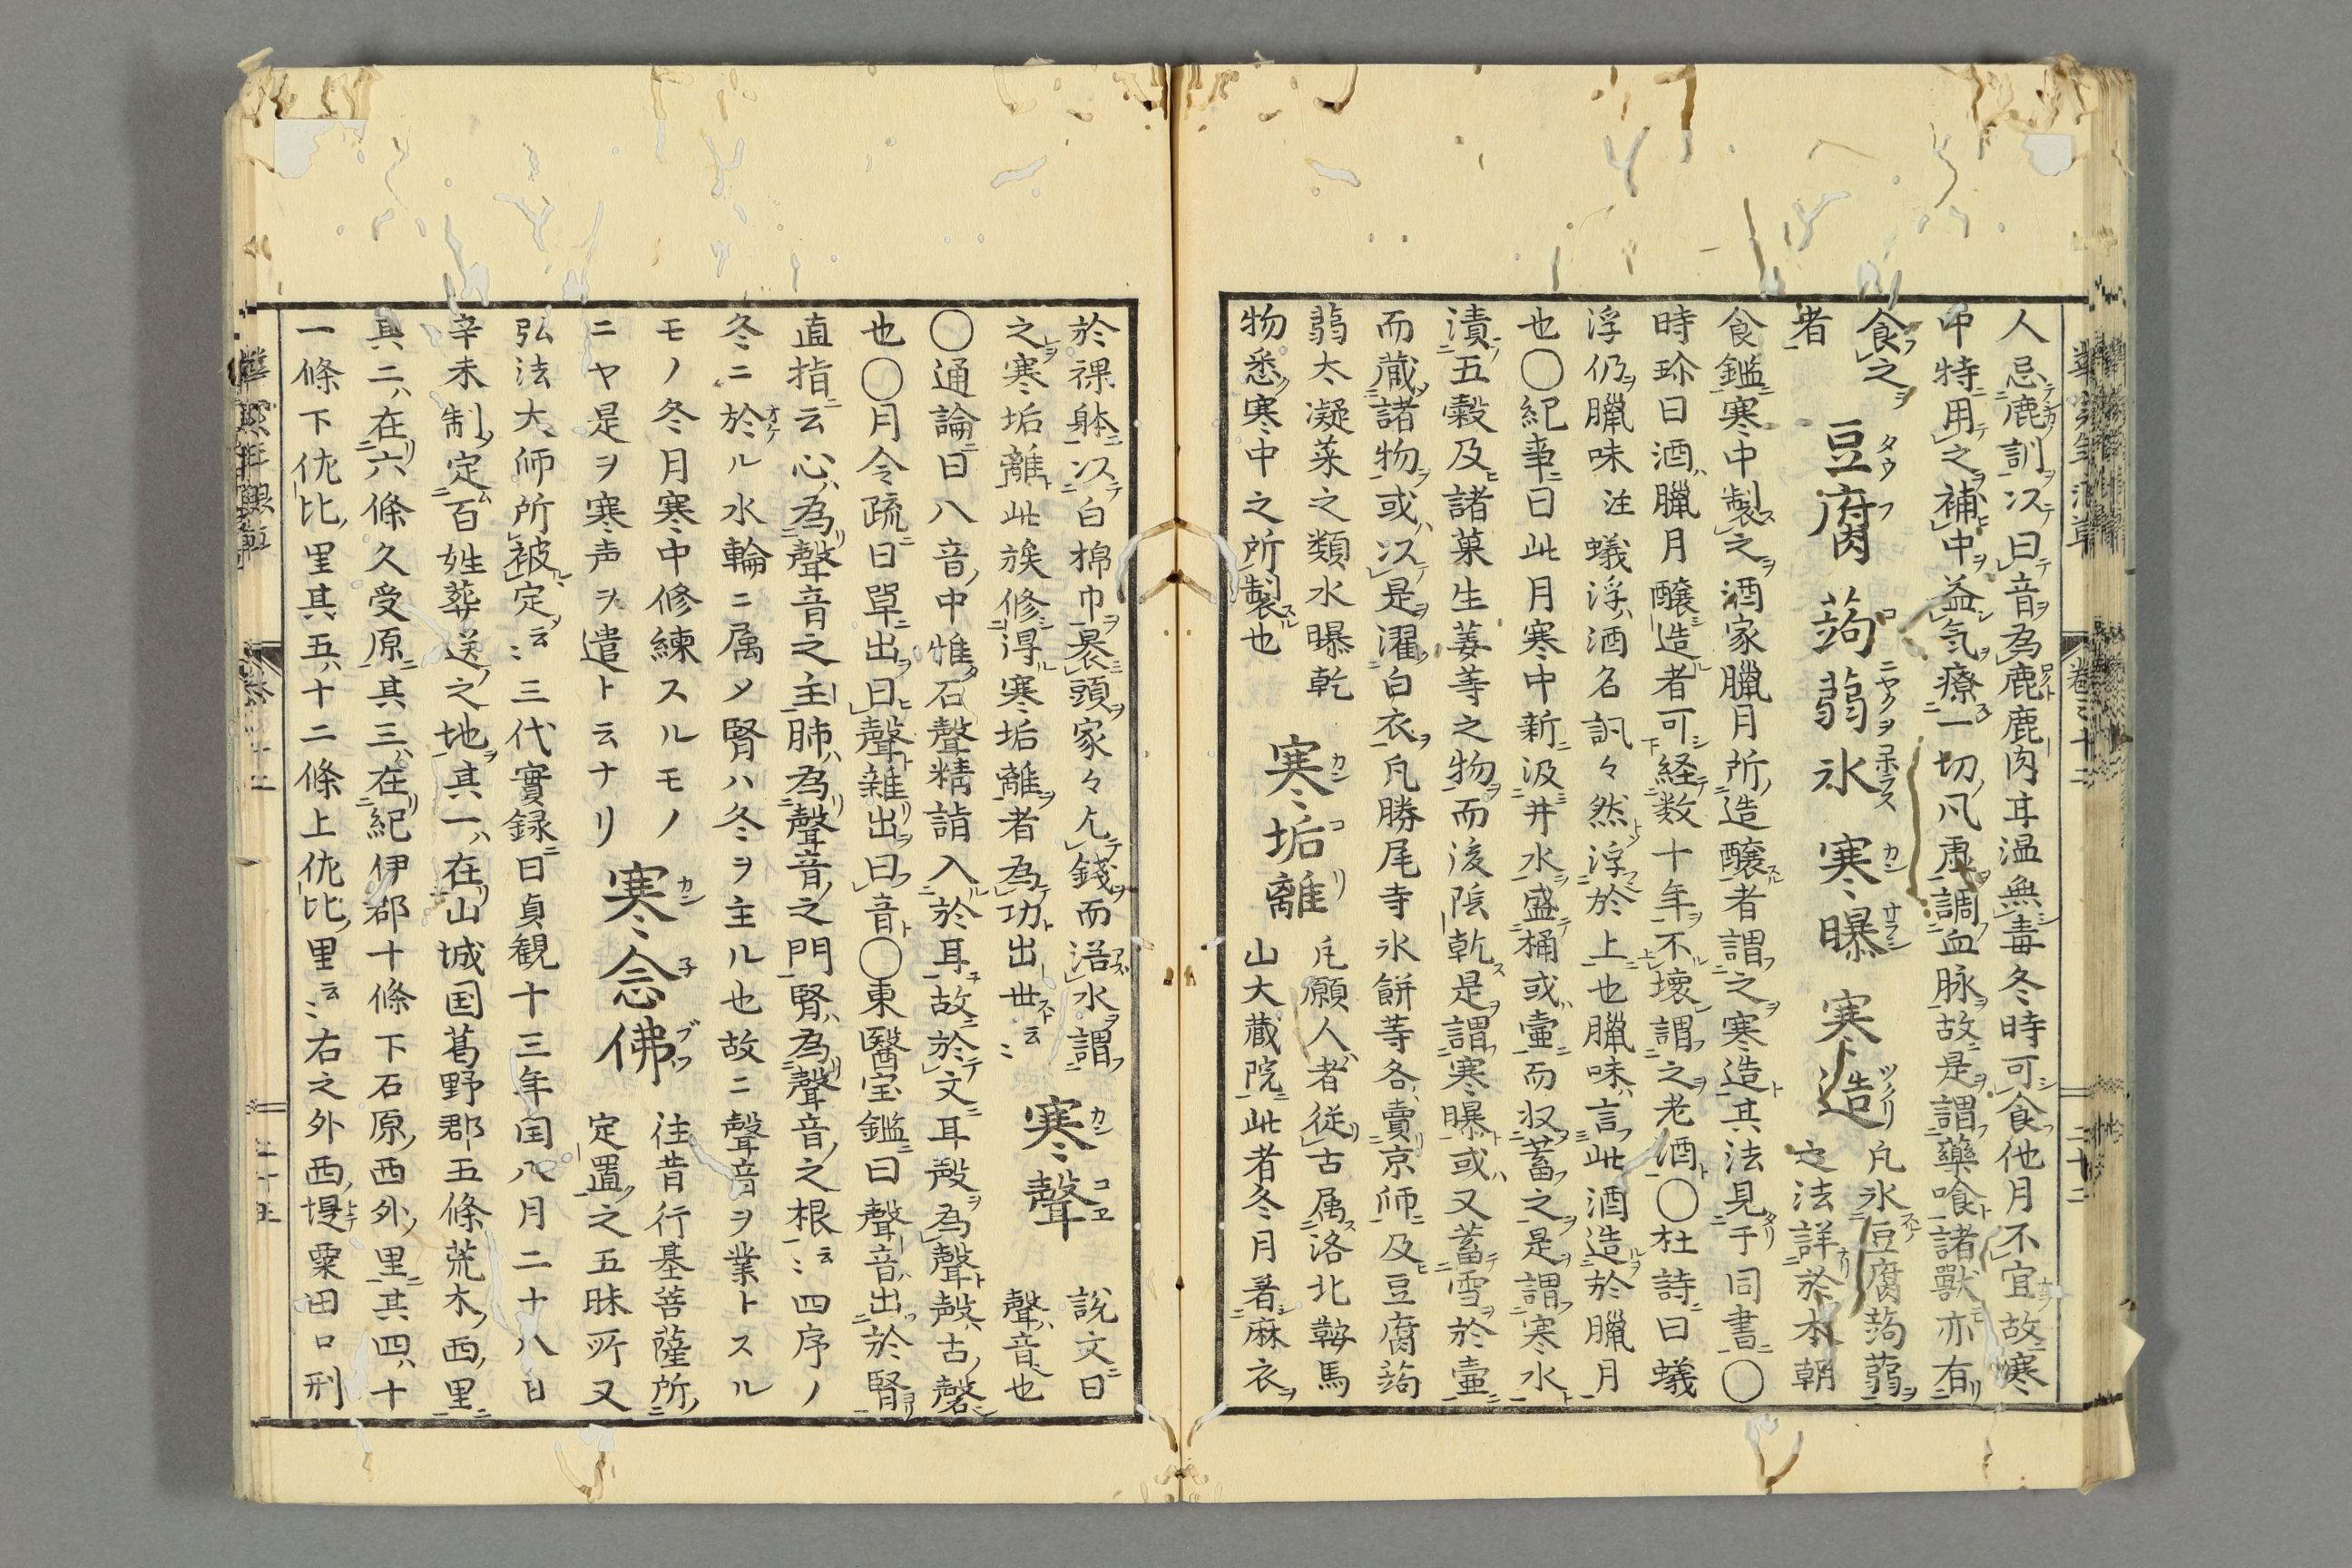 人忌鹿訓以曰音為鹿鹿肉耳温無毒冬時可食他月不宜故寒
中特用之補中益気療一切凡虚調血脉故是謂藥喰諸獸亦有
食之
者
豆腐 蒟蒻氷 寒曝 寒造
タウフ コニヤクヲコホラス カンサラシ カンツクリ
凡氷豆腐蒟蒻
之法詳於本朝
食鑑寒中製之酒家臘月所造醸者謂之寒造其法見于同書〇
時珍曰酒臘月醸造者可経数十年不壊謂之老酒〇杜詩曰蟻
浮仍臘味注蟻浮酒名訊々然浮於上也臘味言此酒造於臘月
也〇紀事曰此月寒中新汲井水盛桶或壷而収蓄之是謂寒水
漬五穀及諸菓生姜等之物而後陰乾是謂寒曝或又蓄雪於壷
而蔵諸物或以是濯白衣凡勝尾寺氷餅等各賣京師及豆腐蒟
蒻太凝菜之類水曝乾
物悉寒中之所製也
寒垢離
カンコリ
凡願人者従古属洛北鞍馬
山大蔵院此者冬月著麻衣
於裸躰以白棉巾裹頭家々乞錢而浴水謂
之寒垢離此族修得寒垢離者為功出世云々
寒聲
カンコヱ
説文曰
聲音也
〇通論曰八音中惟石聲精詣入於耳故於文耳殸為聲殸古磬
也〇月令疏曰單出曰聲雜出曰音〇東醫宝鑑曰聲音出於腎
直指云心為聲音之主肺為聲音之門腎為聲音之根云々四序ノ
冬ニ於ル水輪ニ属メ腎ハ冬ヲ主ル也故ニ聲音ヲ業トスル
モノ冬月寒中修練スルモノ
ニヤ是ヲ寒声ヲ遣ト云ナリ
寒念佛
カンネブツ
往昔行基菩薩所
定置之五昧所又
弘法大師所被定云々三代實録曰貞観十三年閏八月二十八日
辛未制定百姓葬送之地其一在山城国葛野郡五條荒木西里
其二在六條久受原其三在紀伊郡十條下石原西外里其四十
一條下佐比里其五十二條上佐比里云々右之外西堤粟田口刑